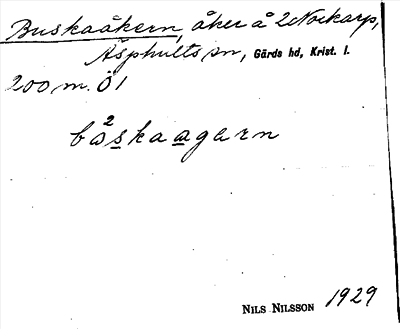 Buskaåkern, åker å 2 Norkarp,
Äsphults sn, Gärds hd, Krist. l.
200 m. Ö 1
bo²skaagarn
NILS NILSSON 1929